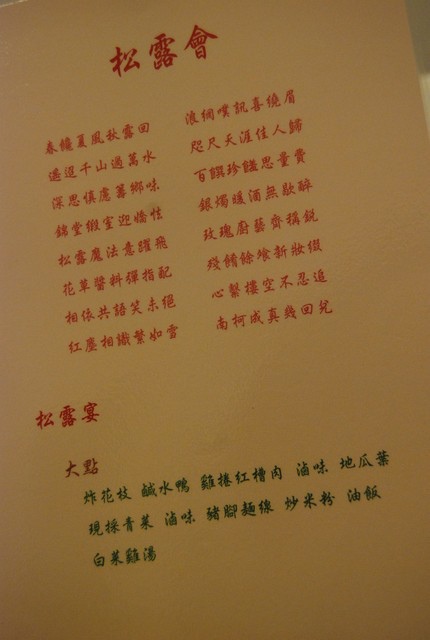 松露會
春纔夏風秋露回
邐迢千山過萬水
深思慎慮籌鄉味
錦堂緞室迎嬌怯
松露魔法意躍飛
花草醬料彈指配
相依共語笑未絕
紅塵相識繁如雪
浪網噗訊喜繞眉
咫尺天涯佳人歸
百饌珍饈思量費
銀燭暖酒無歇醉
玫瑰廚藝齊稱銳
殘餚餘飧新妝綴
心繫樓空不忍追
南柯成真幾回兌
松露宴
大點
炸花枝 鹹水鴨 雞捲紅糟肉 滷味 地瓜葉
現採青菜 滷味 豬腳麵線 炒米粉 油飯
白菜雞湯